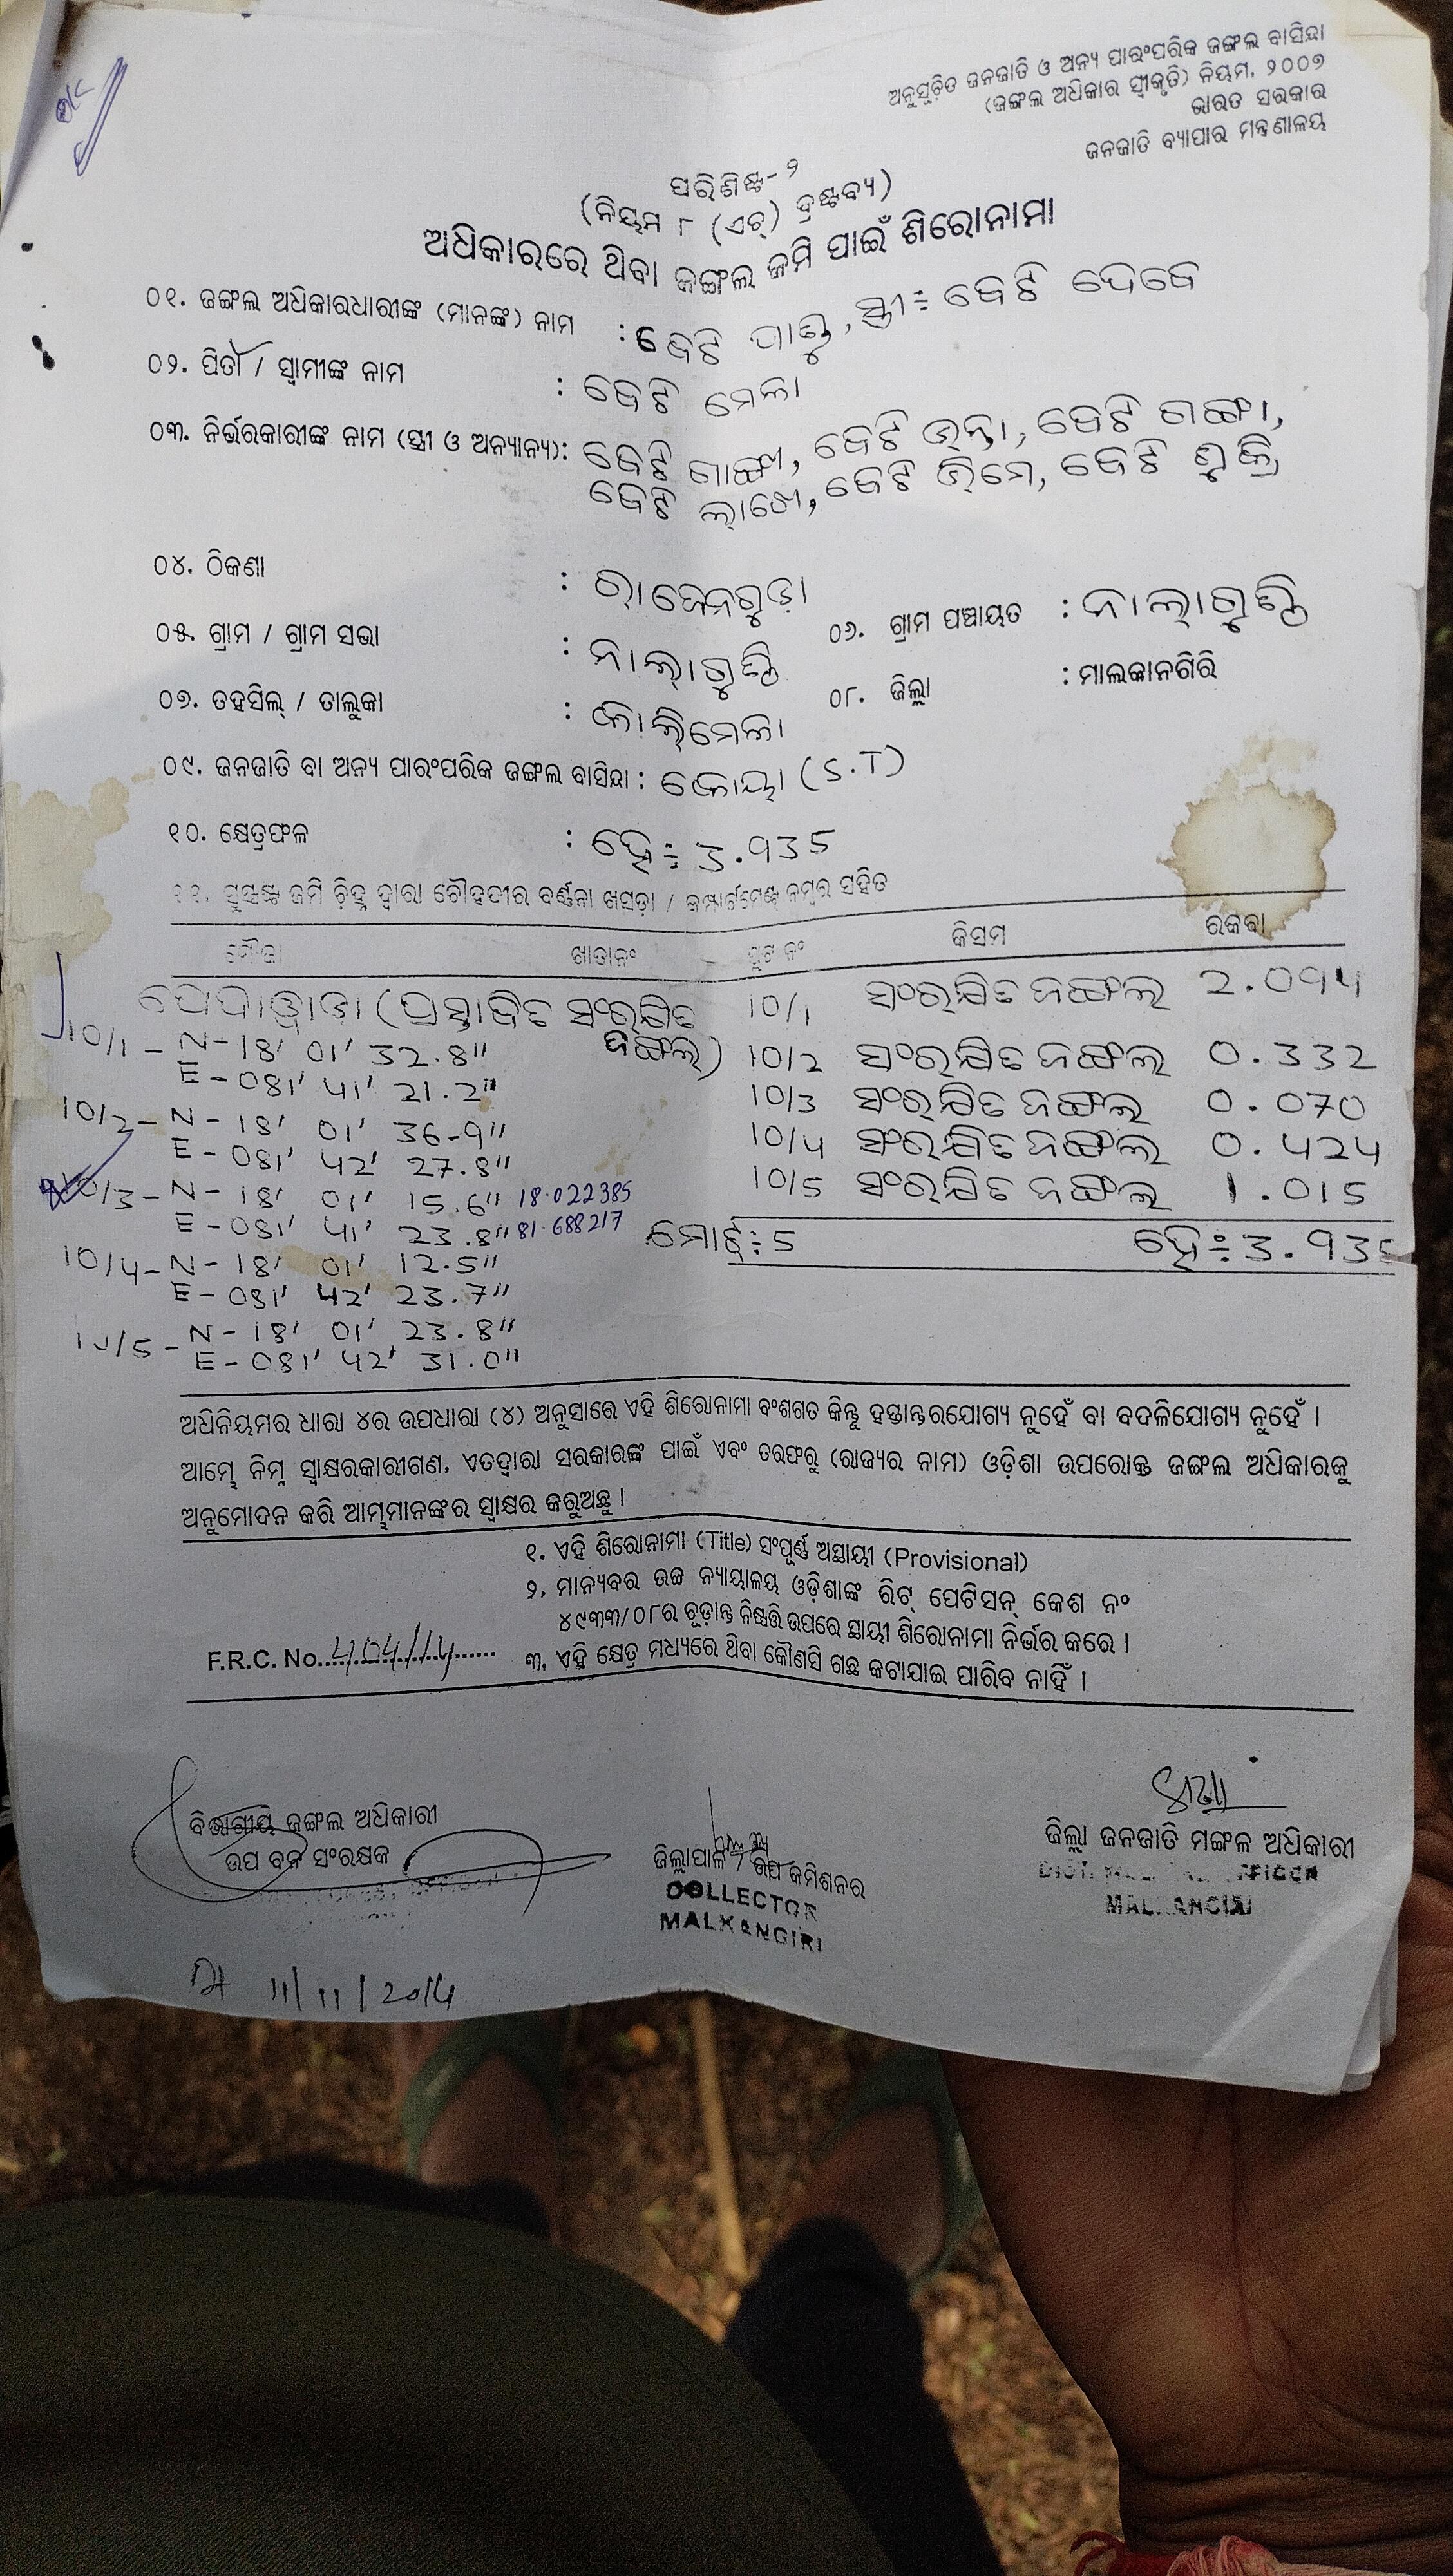 ଅନୁସୂଚିତ ଜନଜାତି ଓ ଅନ୍ୟ ପାରଂପରିକ ଜଙ୍ଗଲ ବାସିନ୍ଦା
(ଜଙ୍ଗଲ ଅଧିକାର ସ୍ୱୀକୃତି) ନିୟମ, ୨୦୦୭
ଭାରତ ସରକାର
ଜନଜାତି ବ୍ୟାପାର ମନ୍ତ୍ରଣାଳୟ
ପରିଶିଷ୍ଟ-୨
(ନିୟମ ୮ (ଏଚ୍) ଦ୍ରଷ୍ଟବ୍ୟ)
ଅଧିକାରରେ ଥିବା ଜଙ୍ଗଲ ଜମି ପାଇଁ ଶିରୋନାମା
୦୧. ଜଙ୍ଗଲ ଅଧିକାରଧାରୀଙ୍କ (ମାନଙ୍କ) ନାମ : ବେଟି ପାଣ୍ଡୁ, ସ୍ତ୍ରୀ÷ ବେଟି ଦେବେ
୦୨. ପିତା / ସ୍ୱାମୀଙ୍କ ନାମ : ବେଟି ମେଲା
୦୩. ନିର୍ଭରକାରୀଙ୍କ ନାମ (ସ୍ତ୍ରୀ ଓ ଅନ୍ୟାନ୍ୟ): ବେଟି ଗାଙ୍ଗୀ, ବେଟି ଭୀମା, ବେଟି ଗଙ୍ଗା,
ବେଟି ବେଟି ଭିମେ, ବେଟି
୦୪. ଠିକଣା : ରାଜେନଗୁଡ଼ା
୦୫. ଗ୍ରାମ / ଗ୍ରାମ ସଭା : ନାଲାଗୁଣ୍ଠି ୦୬. ଗ୍ରାମ ପଞ୍ଚାୟତ : ନାଲାଗୁଣ୍ଠି
୦୭. ତହସିଲ୍ / ତାଲୁକା : କାଲିମେଳା ୦୮. ଜିଲ୍ଲା : ମାଲକାନଗିରି
୦୯. ଜନଜାତି ବା ଅନ୍ୟ ପାରଂପରିକ ଜଙ୍ଗଲ ବାସିନ୍ଦା : କୋୟା (S.T)
୧୦. କ୍ଷେତ୍ରଫଳ : ହେ÷ 3.935
୧୧. ସୁସ୍ପଷ୍ଟ ଜମି ଚିହ୍ନ ଦ୍ୱାରା ଚୌହଦୀର ବର୍ଣ୍ଣନା ଖସଡ଼ା / କମ୍ପାର୍ଟମେଣ୍ଟ ନମ୍ବର ସହିତ
ମୌଜା ଖାତାନଂ ପ୍ଲଟ ନଂ କିସମ ରକବା
ପେଦାୱାଡ଼ା (ପ୍ରସ୍ତାବିତ ସଂରକ୍ଷିତ ଜଙ୍ଗଲ) 10/1 ସଂରକ୍ଷିତ ଜଙ୍ଗଲ 2.094
10/1 - N-18' 01' 32.8"
E-081' 41' 21.2"
10/2 ସଂରକ୍ଷିତ ଜଙ୍ଗଲ 0.332
10/2 - N - 18' 01' 36.9"
E - 081' 42' 27.8"
10/3 ସଂରକ୍ଷିତ ଜଙ୍ଗଲ 0.070
10/4 ସଂରକ୍ଷିତ ଜଙ୍ଗଲ 0.424
10/3 - N - 18' 01' 15.6" 18.022385
E - 081' 41' 23.8" 81.688217
10/5 ସଂରକ୍ଷିତ ଜଙ୍ଗଲ 1.015
ମୋଟ÷ 5 ହେ÷ 3.935
10/4 - N - 18' 01' 12.5"
E - 081' 42' 23.7"
10/5 - N - 18' 01' 23.8"
E - 081' 42' 31.0"
ଅଧିନିୟମର ଧାରା ୪ର ଉପଧାରା (୪) ଅନୁସାରେ ଏହି ଶିରୋନାମା ବଂଶଗତ କିନ୍ତୁ ହସ୍ତାନ୍ତରଯୋଗ୍ୟ ନୁହେଁ ବା ବଦଳିଯୋଗ୍ୟ ନୁହେଁ ।
ଆମ୍ଭେ ନିମ୍ନ ସ୍ୱାକ୍ଷରକାରୀଗଣ, ଏତଦ୍ୱାରା ସରକାରଙ୍କ ପାଇଁ ଏବଂ ତରଫରୁ (ରାଜ୍ୟର ନାମ) ଓଡ଼ିଶା ଉପରୋକ୍ତ ଜଙ୍ଗଲ ଅଧିକାରକୁ
ଅନୁମୋଦନ କରି ଆମ୍ଭମାନଙ୍କର ସ୍ୱାକ୍ଷର କରୁଅଛୁ ।
୧. ଏହି ଶିରୋନାମା (Title) ସଂପୂର୍ଣ୍ଣ ଅସ୍ଥାୟୀ (Provisional)
୨. ମାନ୍ୟବର ଉଚ୍ଚ ନ୍ୟାୟାଳୟ ଓଡ଼ିଶାଙ୍କ ରିଟ୍ ପେଟିସନ୍ କେଶ ନଂ
୪୯୩୩/୦୮ର ଚୂଡ଼ାନ୍ତ ନିଷ୍ପତ୍ତି ଉପରେ ସ୍ଥାୟୀ ଶିରୋନାମା ନିର୍ଭର କରେ ।
F.R.C. No. 404/14 ୩. ଏହି କ୍ଷେତ୍ର ମଧ୍ୟରେ ଥିବା କୌଣସି ଗଛ କଟାଯାଇ ପାରିବ ନାହିଁ ।
ବିଭାଗୀୟ ଜଙ୍ଗଲ ଅଧିକାରୀ
ଉପ ବନ ସଂରକ୍ଷକ
ଜିଲ୍ଲାପାଳ / ଉପ କମିଶନର
COLLECTOR
MALKANGIRI
ଜିଲ୍ଲା ଜନଜାତି ମଙ୍ଗଳ ଅଧିକାରୀ
MALKANGIRI
Dt 11/11/2014